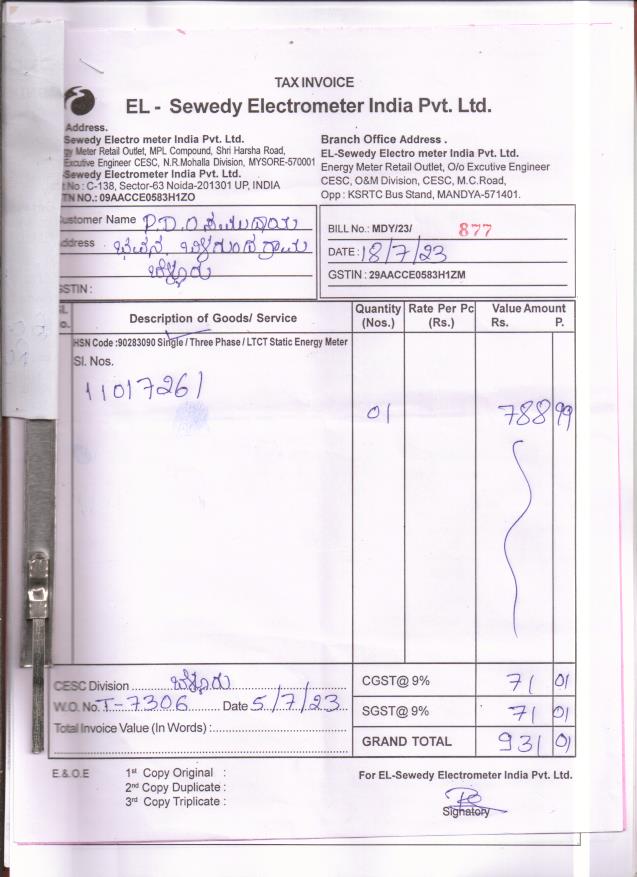 TAX INVOICE
EL - Sewedy Electrometer India Pvt. Ltd.
Address.
Sewedy Electro meter India Pvt. Ltd.
gy Meter Retail Outlet, MPL Compound, Shri Harsha Road,
Excutive Engineer CESC, N.R.Mohalla Division, MYSORE-570001
-Sewedy Electrometer India Pvt. Ltd.
t No : C-138, Sector-63 Noida-201301 UP, INDIA
TN NO.: 09AACCE0583H1ZO
Branch Office Address .
EL-Sewedy Electro meter India Pvt. Ltd.
Energy Meter Retail Outlet, O/o Excutive Engineer
CESC, O&M Division, CESC, M.C.Road,
Opp : KSRTC Bus Stand, MANDYA-571401.
ustomer Name P.D.O ಸಮುದಾಯ
ddress ಭವನ ಗ್ರಾಮ
GSTIN :
BILL No.: MDY/23/ 877
DATE : 18/7/23
GSTIN : 29AACCE0583H1ZM
Description of Goods/ Service Quantity (Nos.) Rate Per Pc (Rs.) Value Amount Rs. P.
HSN Code :90283090 Single / Three Phase / LTCT Static Energy Meter
Sl. Nos.
11017261
01 788 99
CESC Division
W.O. No. T-7306 Date 5/7/23
Total Invoice Value (In Words) :
CGST@ 9% 71 01
SGST@ 9% 71 01
GRAND TOTAL 931 01
E.& O.E 1st Copy Original :
2nd Copy Duplicate :
3rd Copy Triplicate :
For EL-Sewedy Electrometer India Pvt. Ltd.
Signatory